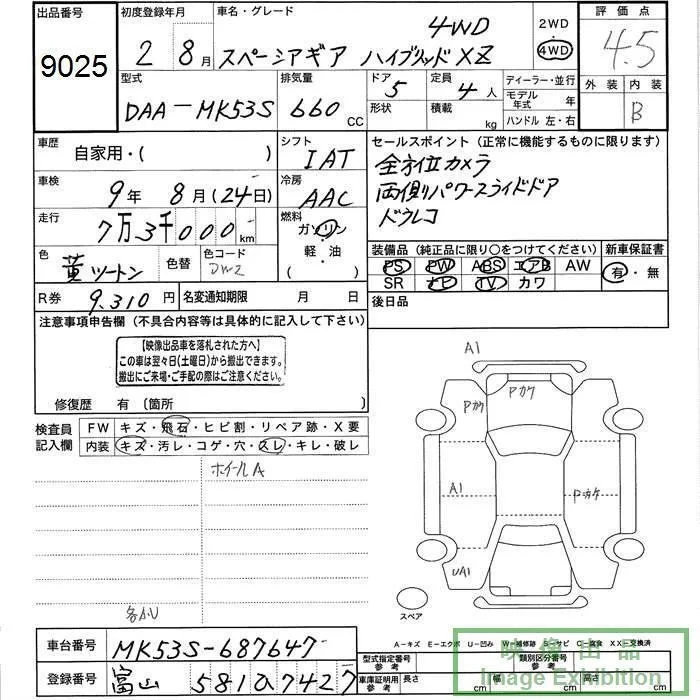 出品番号 初度登録年月 車名・グレード 評価点
9025 2 8月 スペーシアギア ハイブリッドXZ 4WD 2WD 4WD 4.5
型式 排気量 ドア 定員 ディーラー・並行 外装 内装
DAA-MK53S 660 CC 5 4人 モデル年式 年 B
形状 積載 kg ハンドル 左・右
車歴 自家用・( ) シフト IAT セールスポイント(正常に機能するものに限ります)
車検 9年 8月(24日) 冷房 AAC 全方位カメラ
両側パワースライドドア
走行 7万3千000km 燃料 ガソリン 軽・油 ( ) ドラレコ
色 ツートン 色替 色コード 装備品(純正品に限り○をつけてください) 新車保証書
PS PW ABS エアB AW 有・無
SR ナビ TV カワ
R券 9.310円 名変通知期限 月 日 後日品
注意事項申告欄(不具合内容等は具体的に記入して下さい)
【映像出品車を落札された方へ】
この車は翌々日(土曜日)から搬出できます。
搬出にご来場・ご手配の際はご注意ください。
修復歴 有(箇所 )
検査員記入欄 FW キズ・飛石・ヒビ割・リペア跡・X要
内装 キズ・汚レ・コゲ・穴・スレ・キレ・破レ
ホイールA
A1
Pカケ Pカケ
A1 Pカケ
UA1
スペア
各小U
A-キズ E-エクボ U-凹み W-補修跡 S-サビ C-腐食 XX-交換済
車台番号 MK53S-687647
型式指定番号 類別区分番号
参考 参考
登録番号 富山 581 7427
車庫証明用 参考 長さ cm 幅 cm cm
映像出品
Image Exhibition